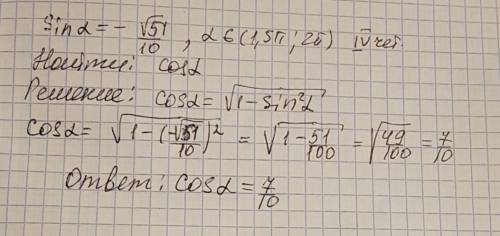 Sinα = - √51/10, α ∈ (1,5π; 2π) IV чет
Найти: cosα
Решение: cosα = √(1-sin²α)
cosα = √(1-(-√51/10)²) = √(1-51/100) = √(49/100) = 7/10
Ответ: cosα = 7/10